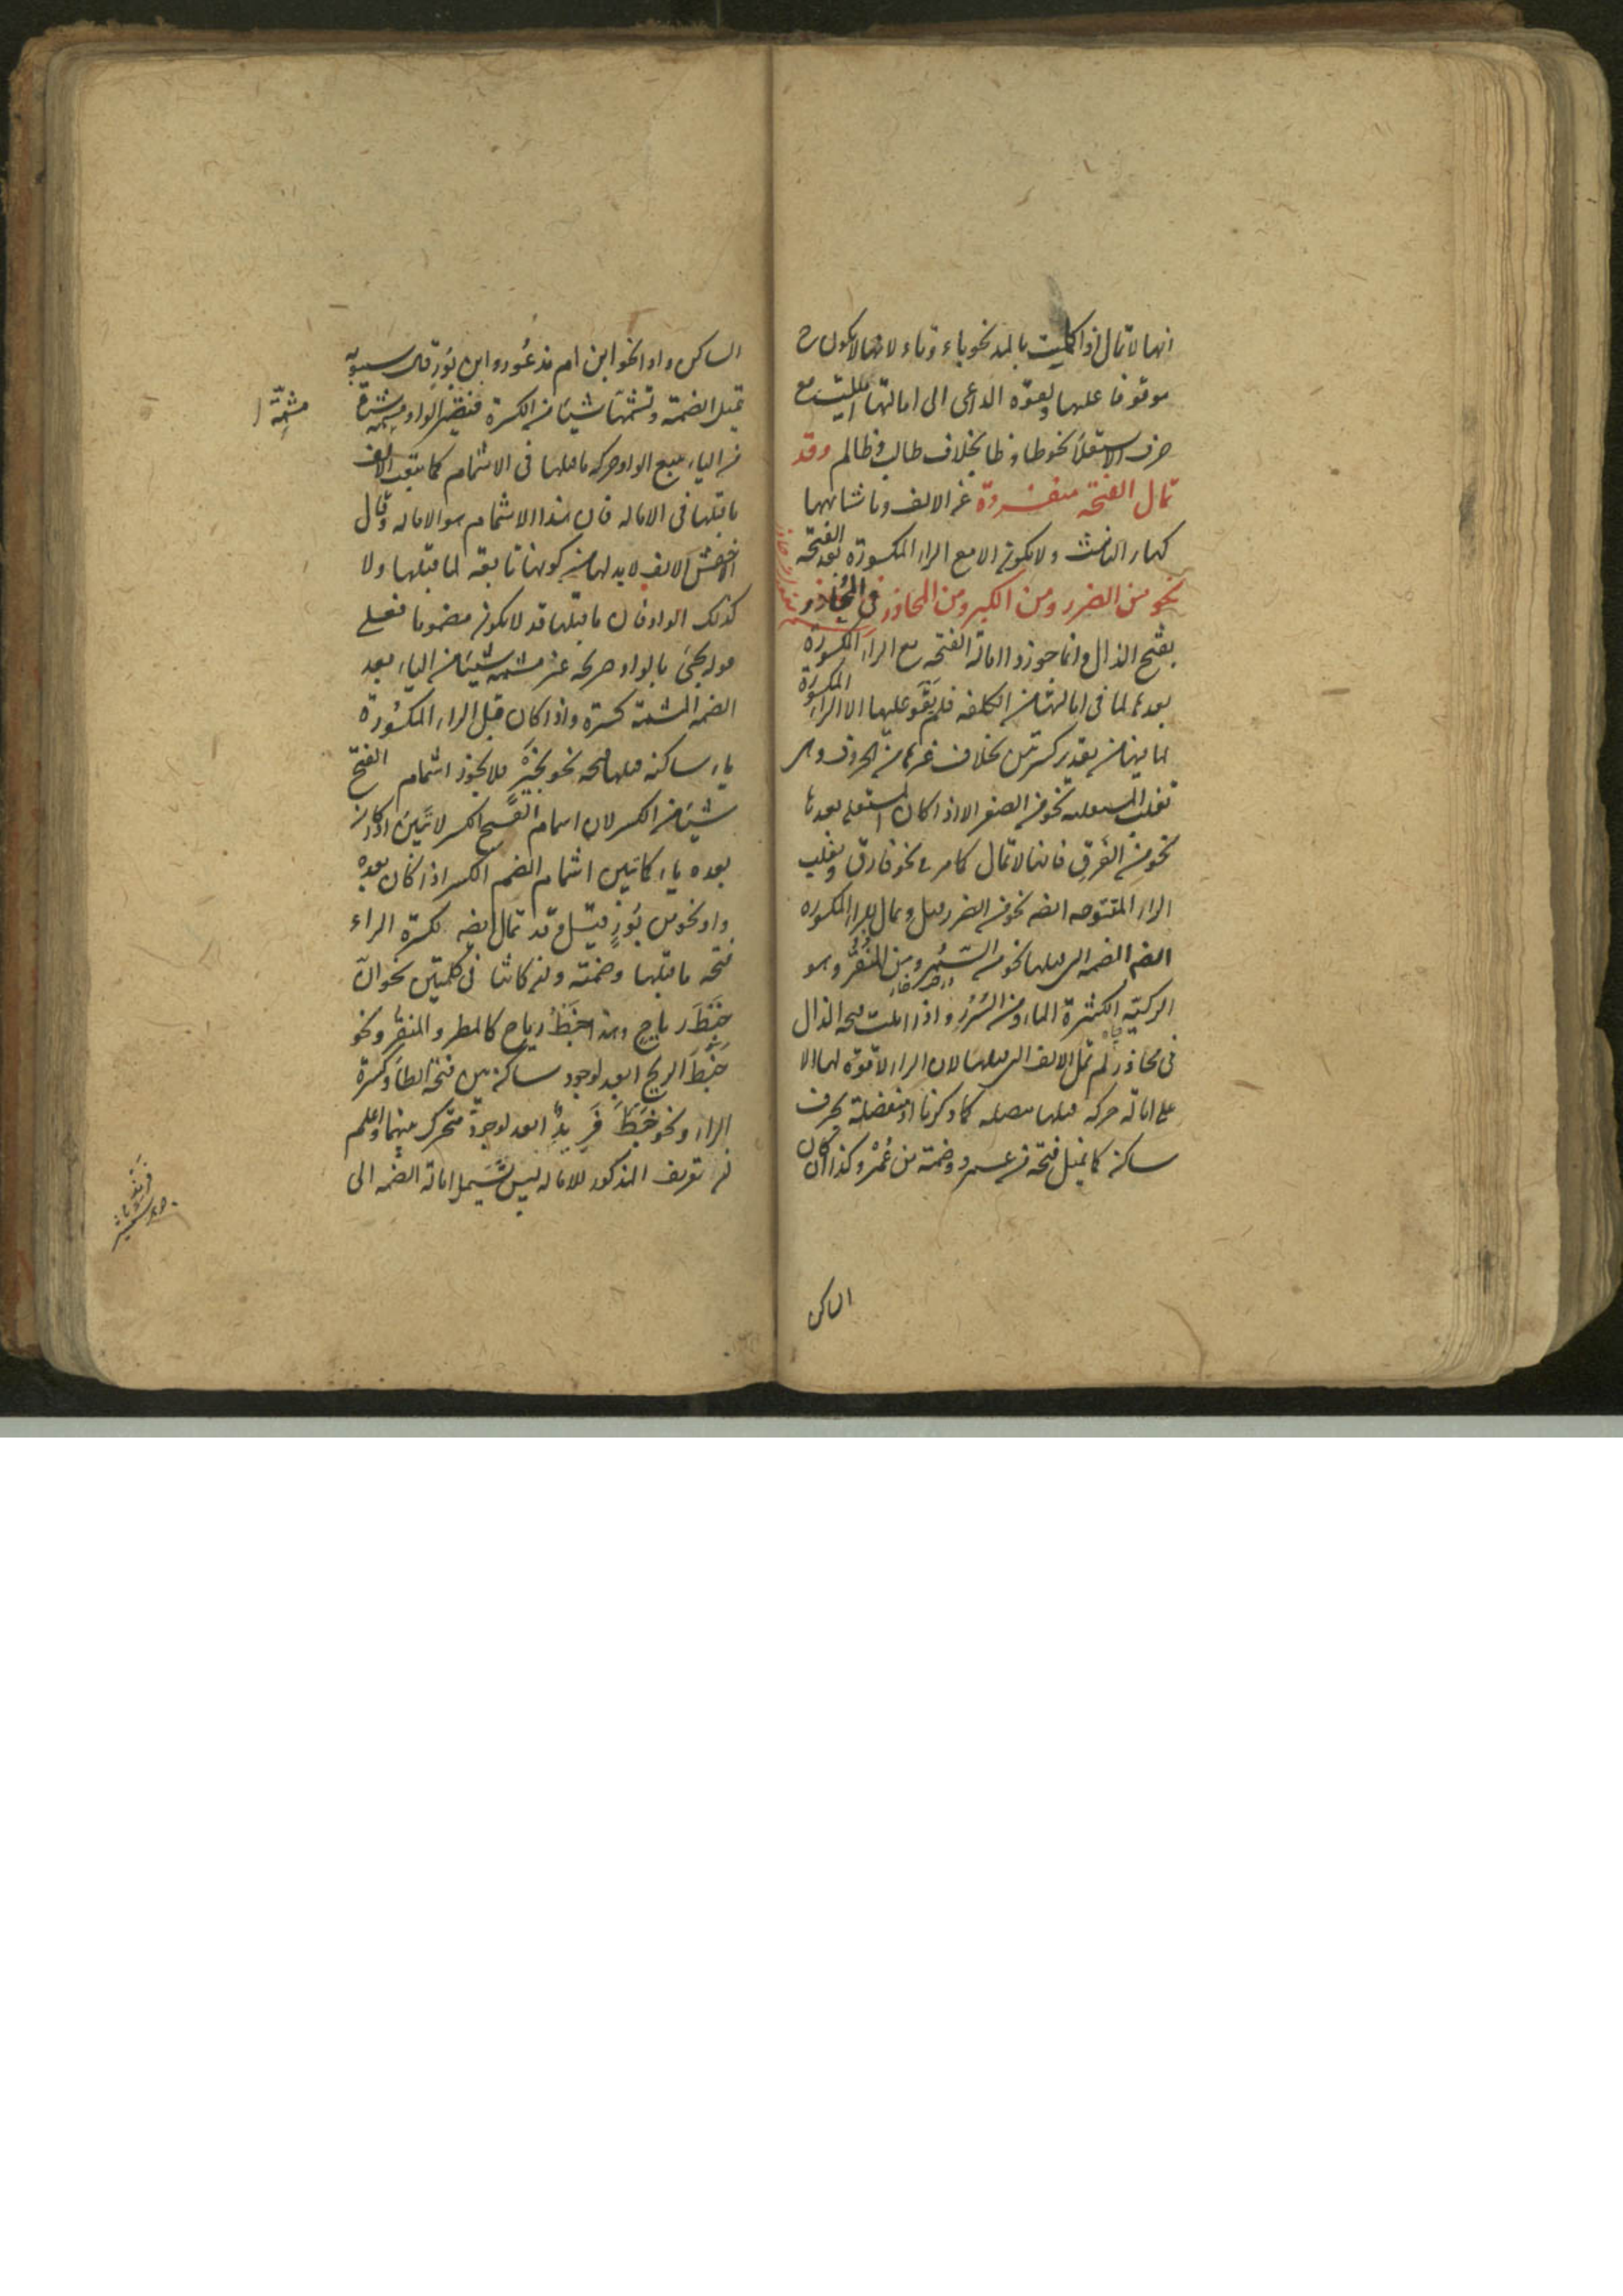 انها لا تمال اذا كملت بالمد نحو باء وتاء لانها لا يكون ح
موقوفا عليها ولقوة الداعى الى امالتها امليت مع
حرف الاستعلا نحو طا وظا بخلاف طالب وظالم وقد
تمال الفتحه منفردة عن الالف وما شابهها
كهاء التانيث ولا يكون الا مع الراء المكسورة بعد الفتحه
نحو من الضرر ومن الكبر ومن المحاذر فى المحاذر
بفتح الذال وانما جوزوا امالة الفتحه مع الراء المكسورة
بعدها لما فى امالتها من الكلفه فلم يقو عليها الا الراء المكسورة
لما فيها من تقدير كسرتين بخلاف غيرها من الحروف وهى
تغلب المستعليه نحو من الصغر الا اذا كان المستعلى بعدها
نحو من الفرق فانها لا تمال كما مر فى نحو فارق وتغلب
الراء المفتوحه ايضا نحو من الضرر قيل وتمال للراء المكسوره
ايضا الضمه التى قبلها نحو من السمر ومن المنقر وهو
الركية الكثيرة الماء ومن السرر واذا املت فتحه الذال
فى محاذر لم تمل الالف التى قبلها لان الراء لا قوة لها الا
على امالة حركه قبلها متصله كما ذكرنا او منفصلة بحرف
ساكن كما تميل فتحة من عمرو وضمة من عمر وكذا ان كان
الساكن
الساكن واوا نحو ابن ام مذعور وابن بور قال سيبويه
تميل الضمة وتشمها شيئا من الكسرة فتصير الواو مشمة
مشمة
من الياء وتتبع الواو حركه ما قبلها فى الاشمام كما تتبع الالف
ما قبلها فى الاماله فان هذا الاشمام هو الاماله وقال
الاخفش الالف لابد لها من كونها تابعة لما قبلها ولا
كذلك الواو فان ما قبلها قد لا يكون مضموما فعلى
قوله يجئ بالواو صريحه غير مشمه شيئا من الياء بعد
الضمه المشمة كسرة واذا كان قبل الراء المكسورة
ياء ساكنه قبلها فتحه نحو بخير فلا يجوز اشمام الفتح
شيئا من الكسر لان اشمام الفتح الكسر لا تبين اذا كان
بعده ياء كما تبين اشمام الضم الكسر اذا كان بعده
واو نحو من نور قيل وقد تمال ايضا لكسرة الراء
فتحه ما قبلها وضمته وان كانتا فى كلمتين نحو ان
خبط رياح وهذا خبط رياح كالمطر والمنقر ونحو
خبط الريح ابعد لوجود ساكن بين فتحه الطاء وكسرة
الراء ونحو خبط فريد ابعد لوجود متحرك بينهما واعلم
ان تعريف المذكور للاماله ليس يشمل امالة الضمه الى